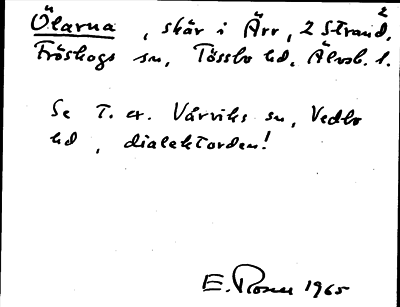 Ölarna, skär i Ärr, 2 Strand, 2
Fröskogs sn, Tössbo hd, Älvsb. l.
Se T. ex. Vårviks sn, Vedbo
hd, dialektorden!
E. Rosen 1965